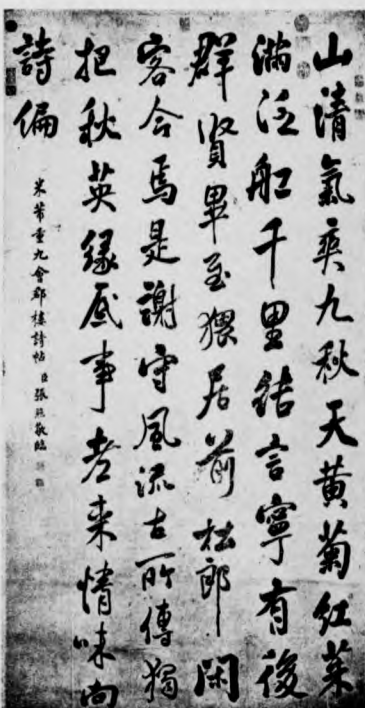 山清氣爽九秋天黄菊红茱
滿泛舡千里結言寧有後
群賢畢至猥居前杜郎閑
客今焉是謝守風流古所傳獨
把秋英緣底事老来情味向
詩偏
米芾重九會郡樓詩帖 臣張照敬臨